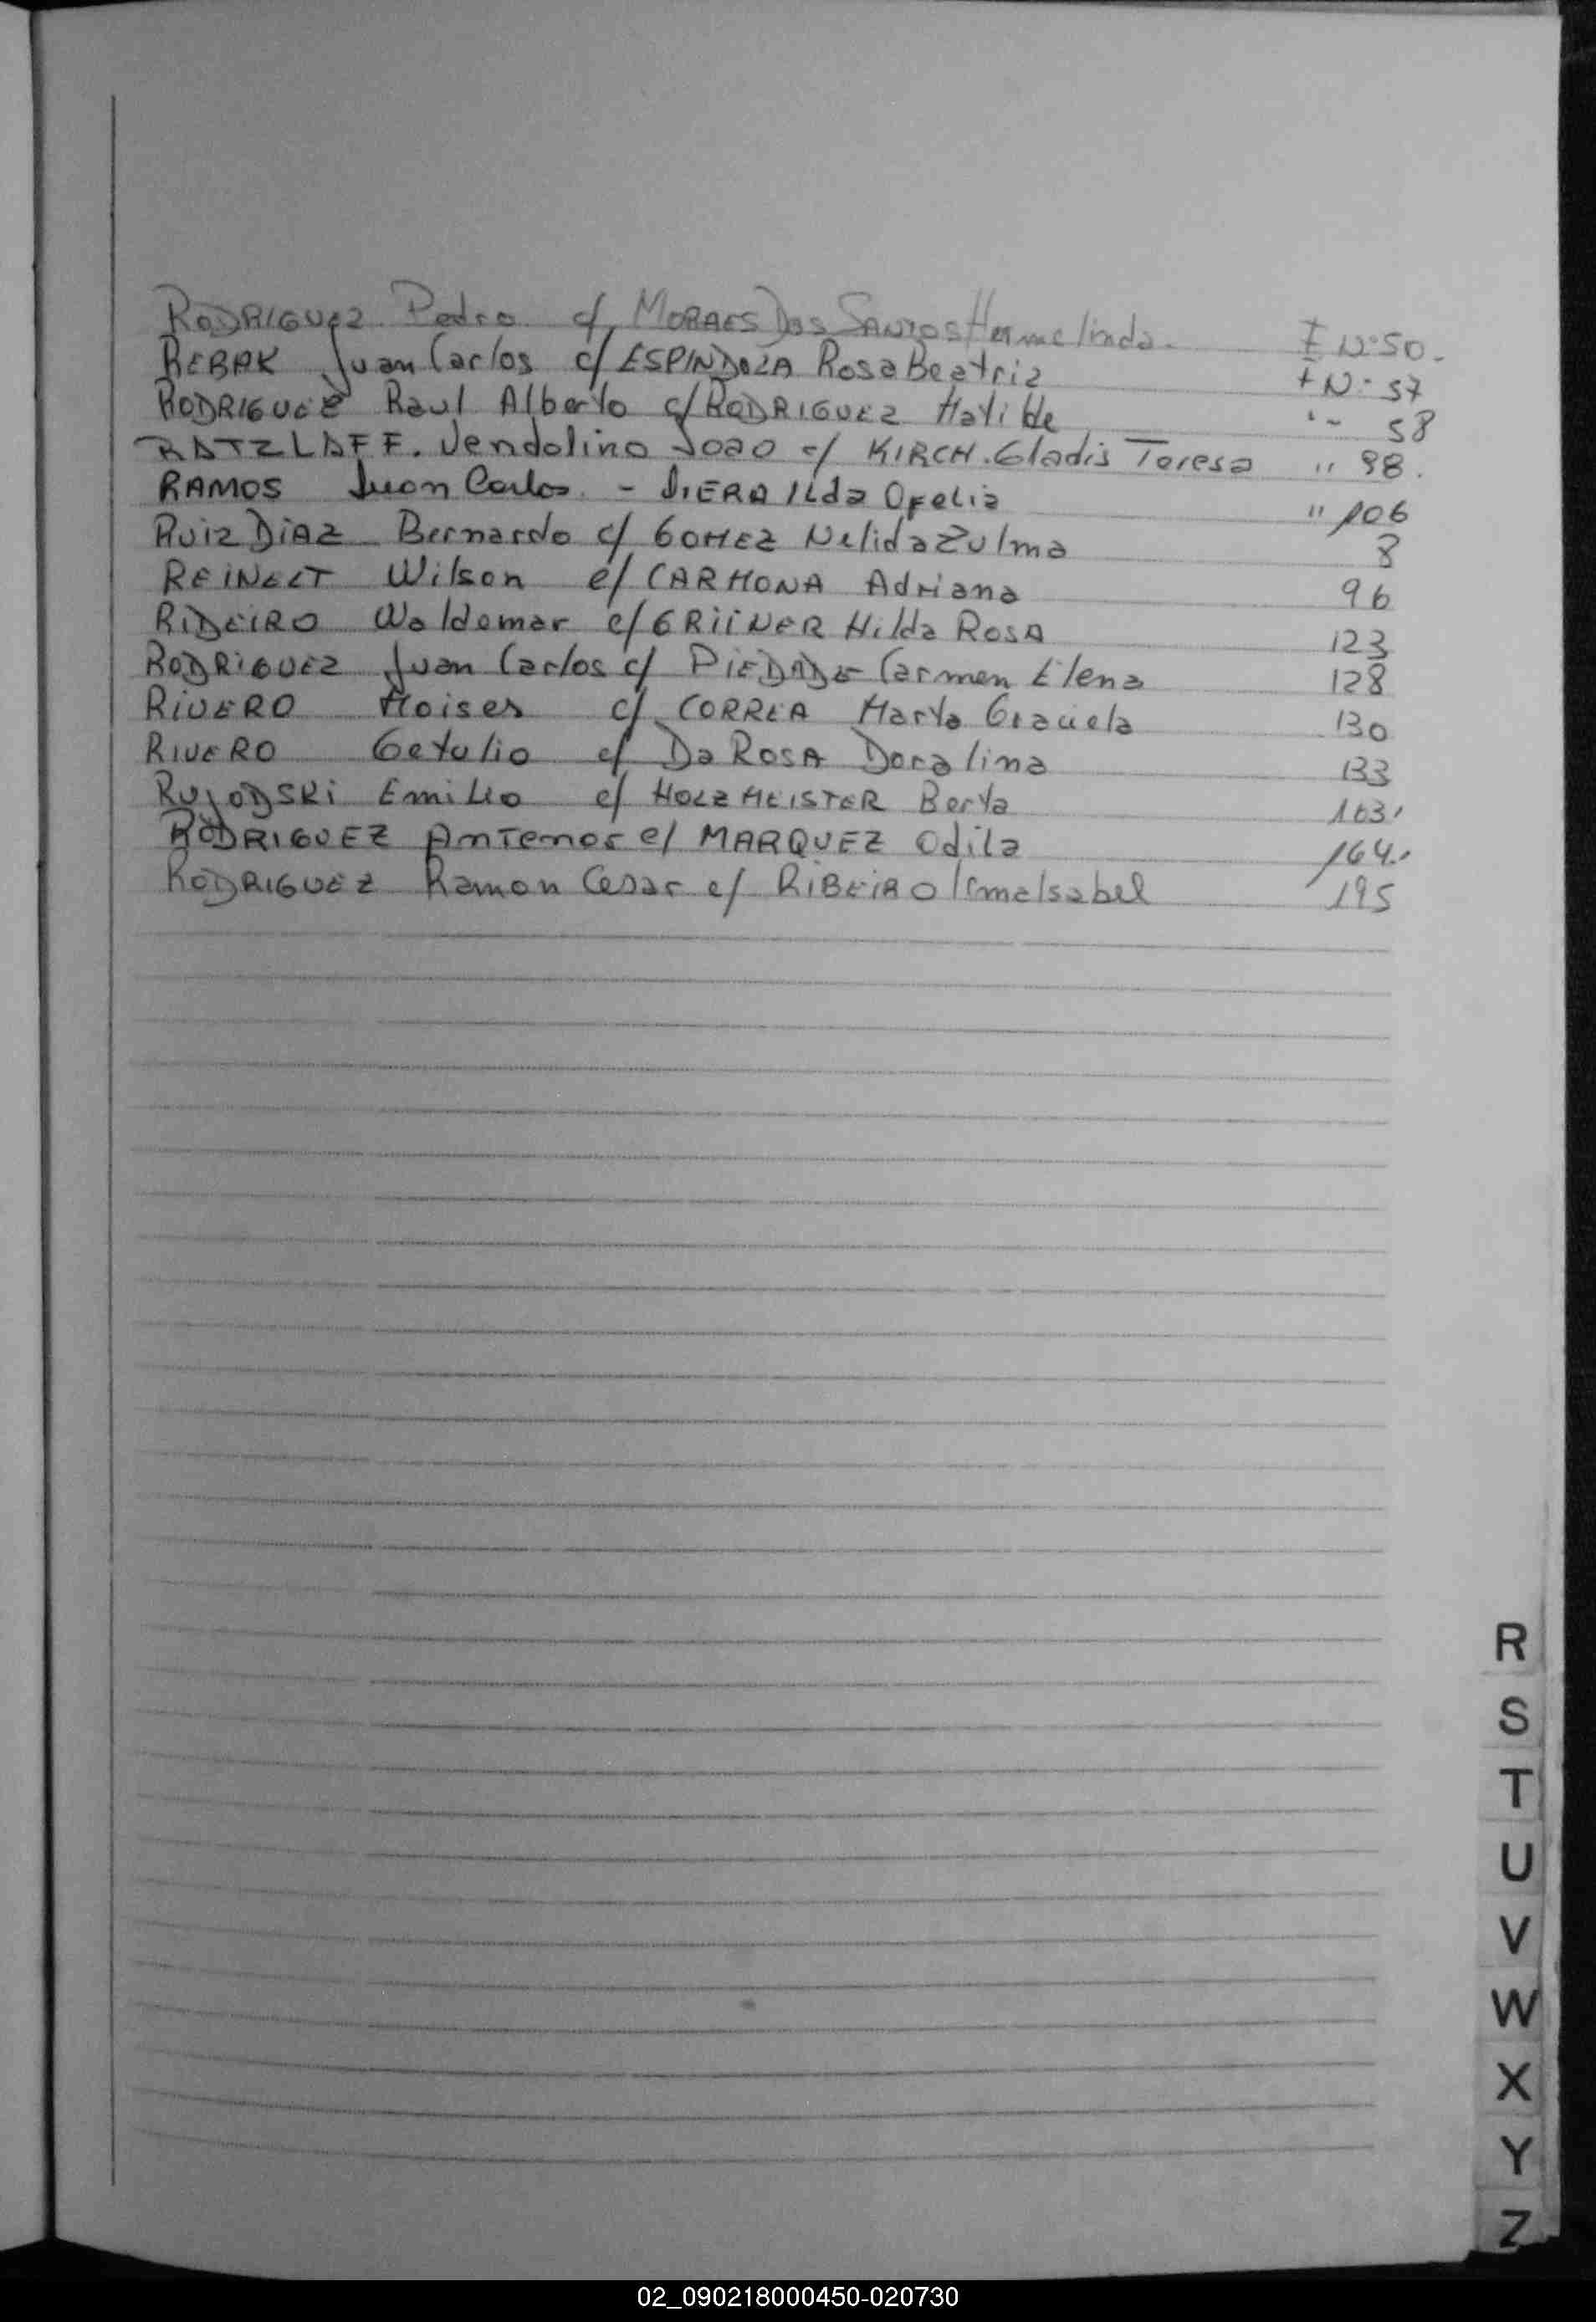 RODRIGUEZ Pedro c/ MORAES Dos SANTOS Hermelinda. F N:50.
REBAK Juan Carlos c/ ESPINDOLA Rosa Beatriz F N: 57
RODRIGUEZ Raul Alberto c/ RODRIGUEZ Matilde " 58
RATZLAFF. Vendolino Joao c/ KIRCH. Gladis Teresa " 98.
RAMOS Juan Carlos. - VIERA Ilda Ofelia " 106
RUIZ DIAZ Bernardo c/ GOMEZ Nelida Zulma 8
REINELT Wilson c/ CARMONA Adriana 96
RIBEIRO Waldemar c/ GRIINER Hilda ROSA 123
RODRIGUEZ Juan Carlos c/ PIEDADE Carmen Elena 128
RIVERO Moises c/ CORREA Marta Graciela 130
RIVERO Getulio c/ Da ROSA Doralina 133
Emilio c/ HOLZMEISTER Berta 163.
RODRIGUEZ Antenor c/ MARQUEZ Odila 164.
RODRIGUEZ Ramon Cesar c/ RIBEIRO Irma Isabel 195
R
S
T
U
V
W
X
Y
Z
02_090218000450-020730